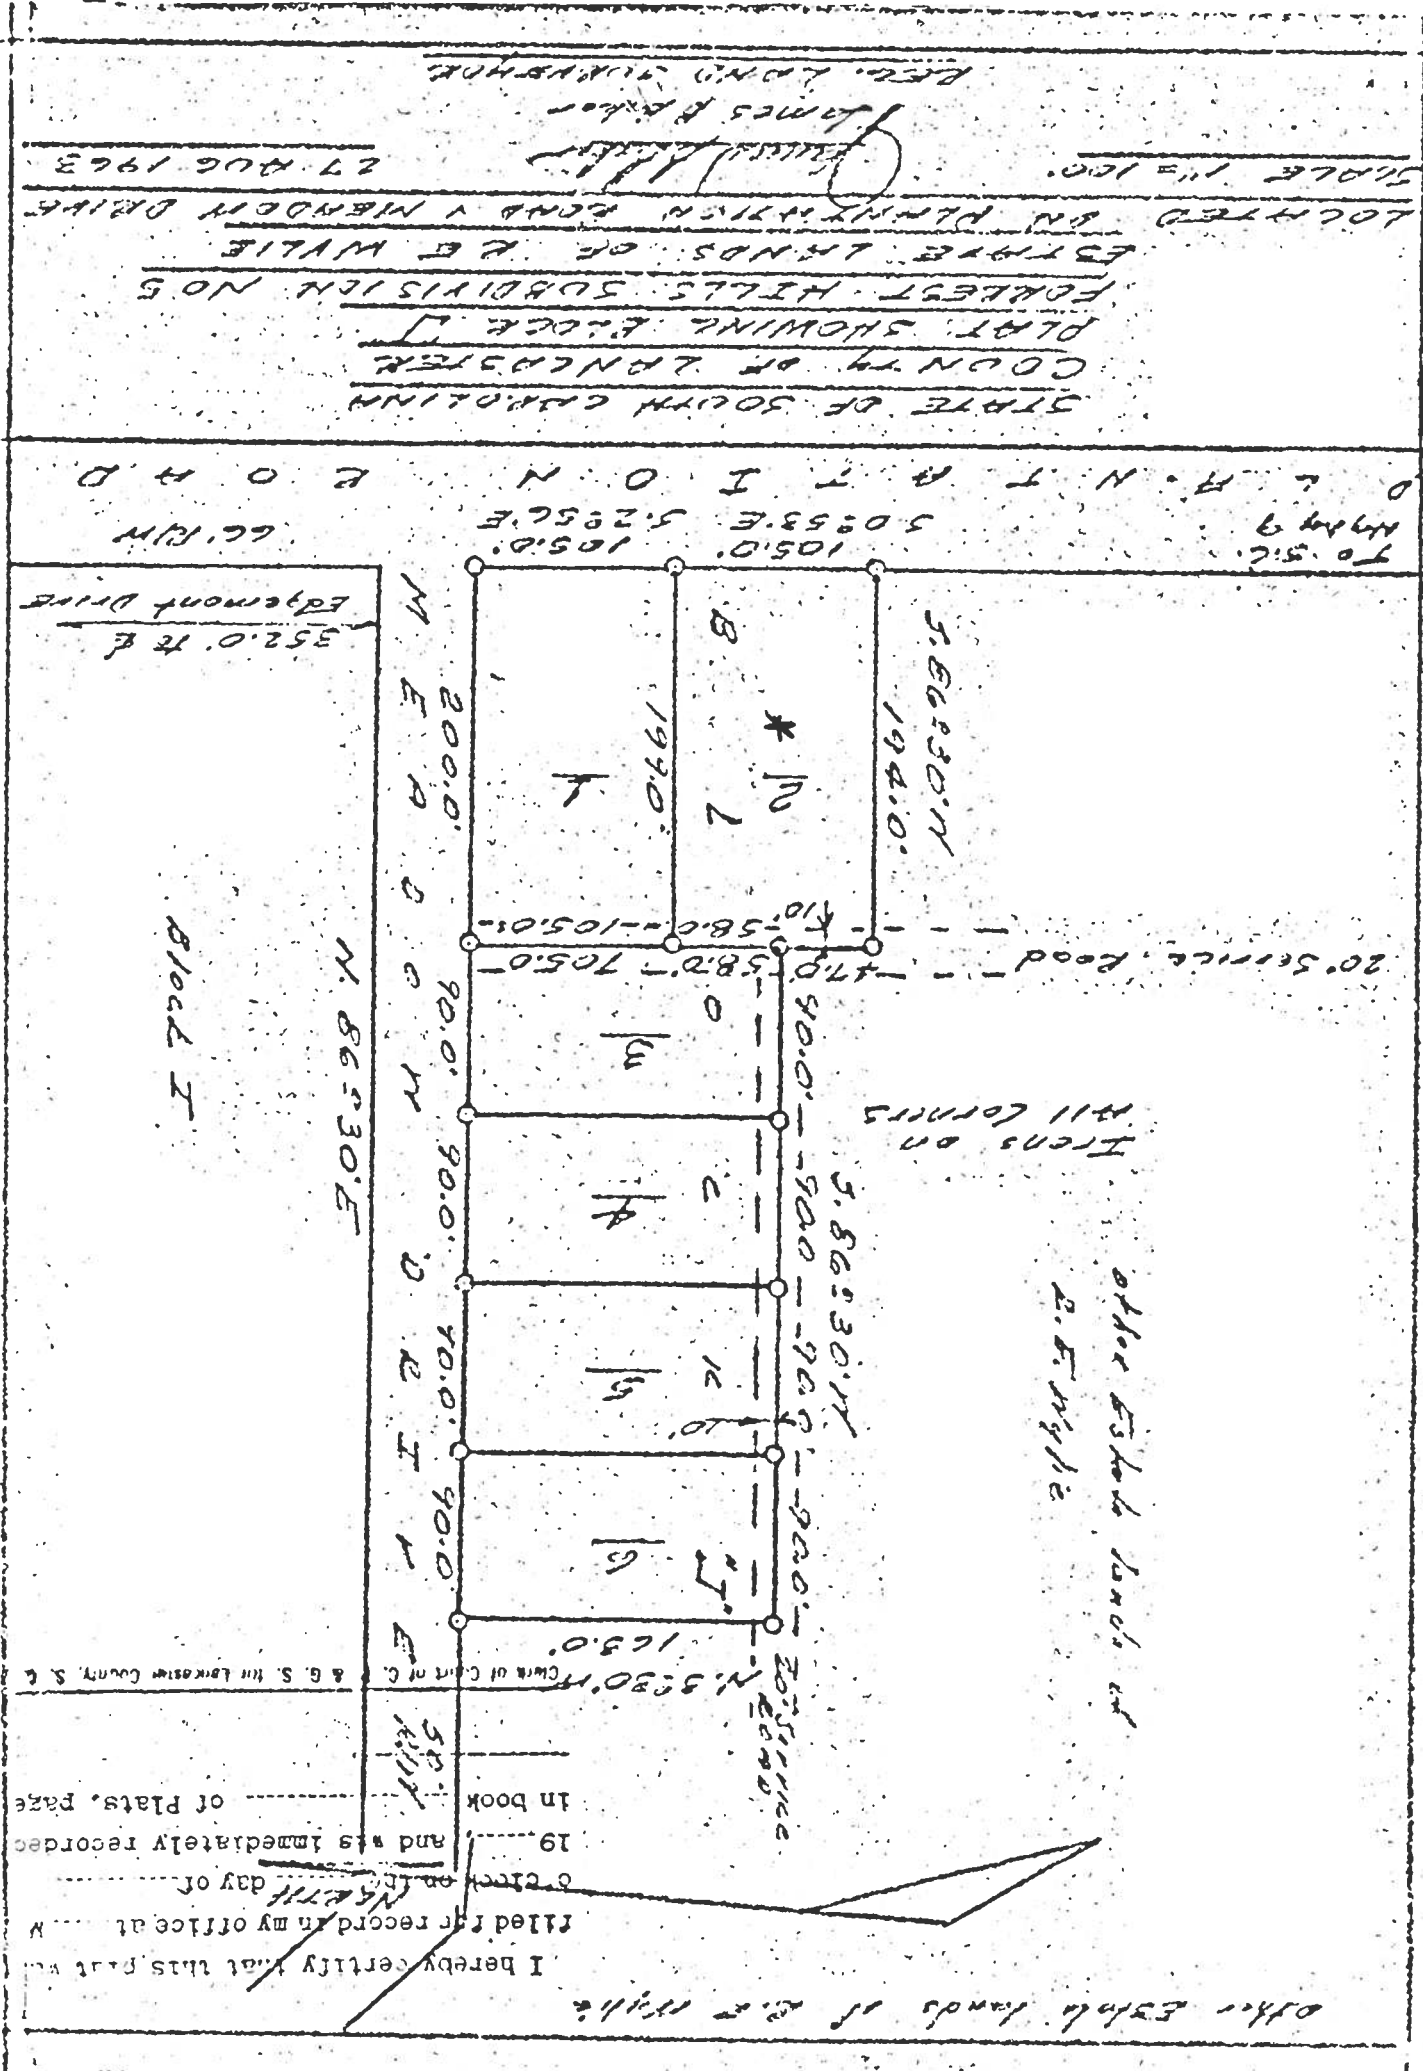 Other Estate Lands of R.E. Wylie
I hereby certify that this plat w
filed for record in my office at M
o'clock on the day of
NORTH
19 , and was immediately recorded
in book of Plats, page
Clerk of Court of C. P. & G. S. for Lancaster County, S. C.
50' R/W
20' Service Road
N. 3°30' W
163.0'
MEADOW DRIVE
N. 86°30' E
Block I
BLOCK "J"
6
5
4
3
2 *
1
90.0' 90.0' 90.0' 90.0' 200.0'
90.0' 90.0' 90.0' 90.0'
S. 86°30' W
10'
Other Estate Lands of
R.E. Wylie
Irons on
All Corners
20' Service Road
47.0' 58.0' 105.0'
58.0' 105.0'
10'
199.0'
S. 86°30' W
198.0'
352.0' to ℄
Edgemont Drive
To S.C.
Hyway 9
105.0' 105.0'
S 0°53' E S. 2°56' E
66' R/W
PLANTATION ROAD
STATE OF SOUTH CAROLINA
COUNTY OF LANCASTER
PLAT SHOWING BLOCK J
FORREST HILLS SUBDIVISION NO 5
ESTATE LANDS OF R E WYLIE
LOCATED ON PLANTATION ROAD & MEADOW DRIVE
SCALE 1"=100'
27 AUG 1963
James
REG. LAND SURVEYOR